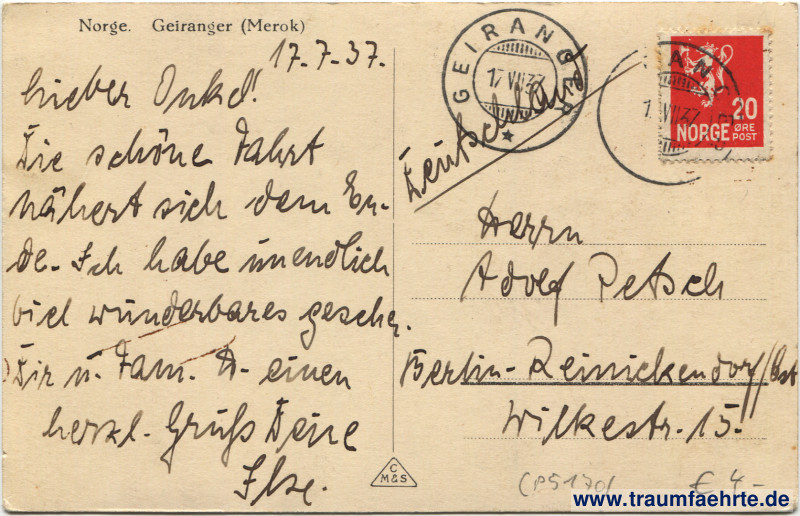 Norge. Geiranger (Merok)
17.7.37.
Lieber Onkel!
Die schöne Fahrt
nähert sich dem En-
de. Ich habe unendlich
viel wunderbares gesehen.
Dir u. Fam. A. einen
herzl. Gruß Deine
Ilse.
GEIRANGER
17 VII 37
Deutschland
NORGE
20
ØRE
POST
Herrn
Adolf Petsch
Berlin-Reinickendorf/Ost
Wilkestr. 15.
C
M&S
€ 4-
www.traumfaehrte.de